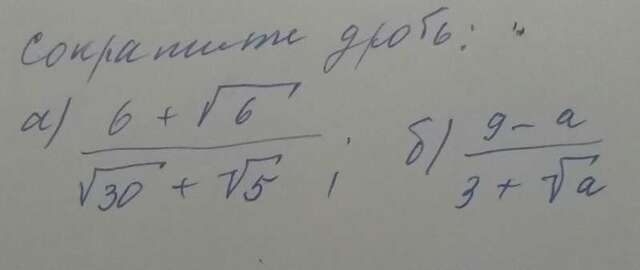 Сократите дробь:
а) (6 + √6) / (√30 + √5) ; б) (9 - a) / (3 + √a)